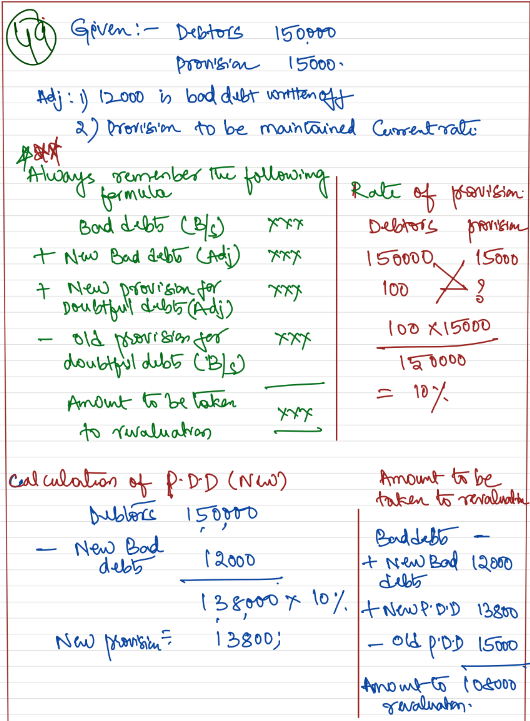 49
Given :- Debtors 150,000
Provision 15000.
Adj : 1) 12000 is bad debt written off
2) Provision to be maintained Current rate.
Always remember the following
formula
Bad debts (B/s) xxx
+ New Bad debts (Adj) xxx
+ New provision for
Doubtful debts (Adj) xxx
- Old provision for
doubtful debts (B/s) xxx
Amount to be taken
to revaluation xxx
Rate of provision:
Debtors provision
150000 15000
100 ?
100 x 15000
150000
= 10%
Calculation of P.D.D (New)
Debtors 150,000
- New Bad
debts 12000
138,000 x 10%
New provision = 13800;
Amount to be
taken to revaluation
Bad debts -
+ New Bad 12000
debts
+ New P.D.D 13800
- Old P.D.D 15000
Amount to 108000
revaluation.